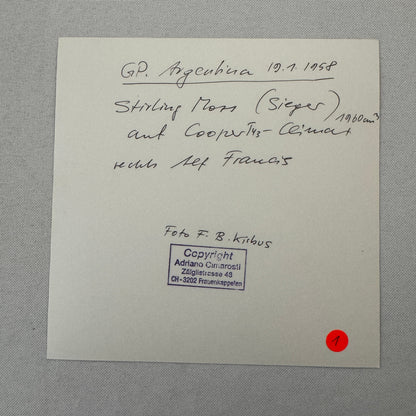 GP. Argentina 19.1.1958
Stirling Moss (Sieger)
auf Cooper T43-Climax 1960 cm³
rechts Alf Francis
Foto F. B. Kirbus
Copyright
Adriano Cimarosti
Zälglistrasse 48
CH-3202 Frauenkappelen
1